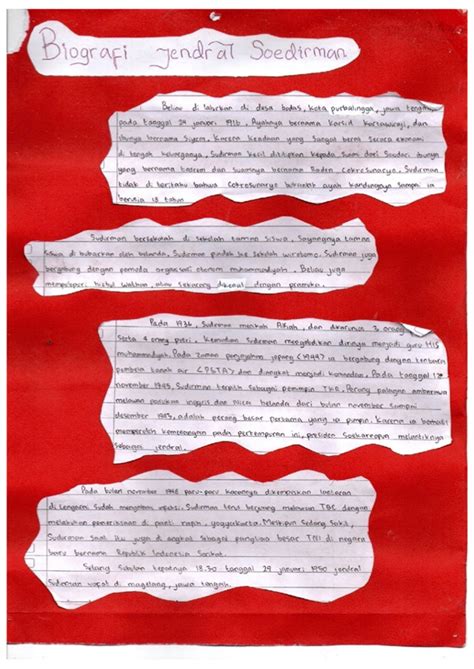 Biografi Jendral Soedirman
Beliau di lahirkan di desa bodas, kota purbalingga, jawa tengah
pada tanggal 24 januari 1916, Ayahnya bernama Karsid Kartawiraji, dan
ibunya bernama Siyem. Karena keadaan yang sangat berat secara ekonomi
di tengah keluarganya, Sudirman kecil dititipkan kepada suami dari saudari ibunya
yang bernama tursem dan suaminya bernama Raden Cokrosunaryo. Sudirman
tidak di beritahu bahwa Cokrosunaryo bukanlah ayah kandungnya sampai ia
berusia 18 tahun
Sudirman bersekolah di sekolah taman siswa, Sayangnya taman
siswa di bubarkan oleh belanda, Sudirman pindah ke sekolah wirotomo. Sudirman juga
bergabung dengan pemuda organisasi otonom muhammadiyah. Beliau juga
mempelopori hizbul wathan, atau sekarang dikenal dengan pramuka.
Pada 1936, Sudirman menikah Alfiah, dan dikaruniai 3 orang
serta 4 orang putri. Kemudian Sudirman mengabdikan dirinya menjadi guru HIS
muhammadiyah. Pada zaman penjajahan jepang (1944) ia bergabung dengan tentara
pembela tanah air (PETA) dan diangkat menjadi komandan. Pada tanggal 12
november 1945, Sudirman terpilih sebagai pemimpin TKR. Perang palagan ambarawa
melawan pasukan inggris dan Nica belanda dari bulan november sampai
desember 1945, adalah perang besar pertama yang ia pimpin. Karena ia berhasil
memperoleh kemenangan pada pertempuran ini, presiden Soekarnopun melantiknya
sebagai jendral.
Pada bulan november 1948 paru-paru kanannya dikempiskan lantaran
di tengarai sudah mengidap infeksi. Sudirman terus berjuang melawan TBC dengan
melakukan pemeriksaan di panti rapih, yogyakarta. Meskipun sedang sakit,
Sudirman saat itu juga di angkat sebagai panglima besar TNI di negara
baru bernama Republik Indonesia Serikat.
Selang sebulan tepatnya 18.30 tanggal 29 januari 1950 jendral
Sudirman wafat di magelang, jawa tengah.